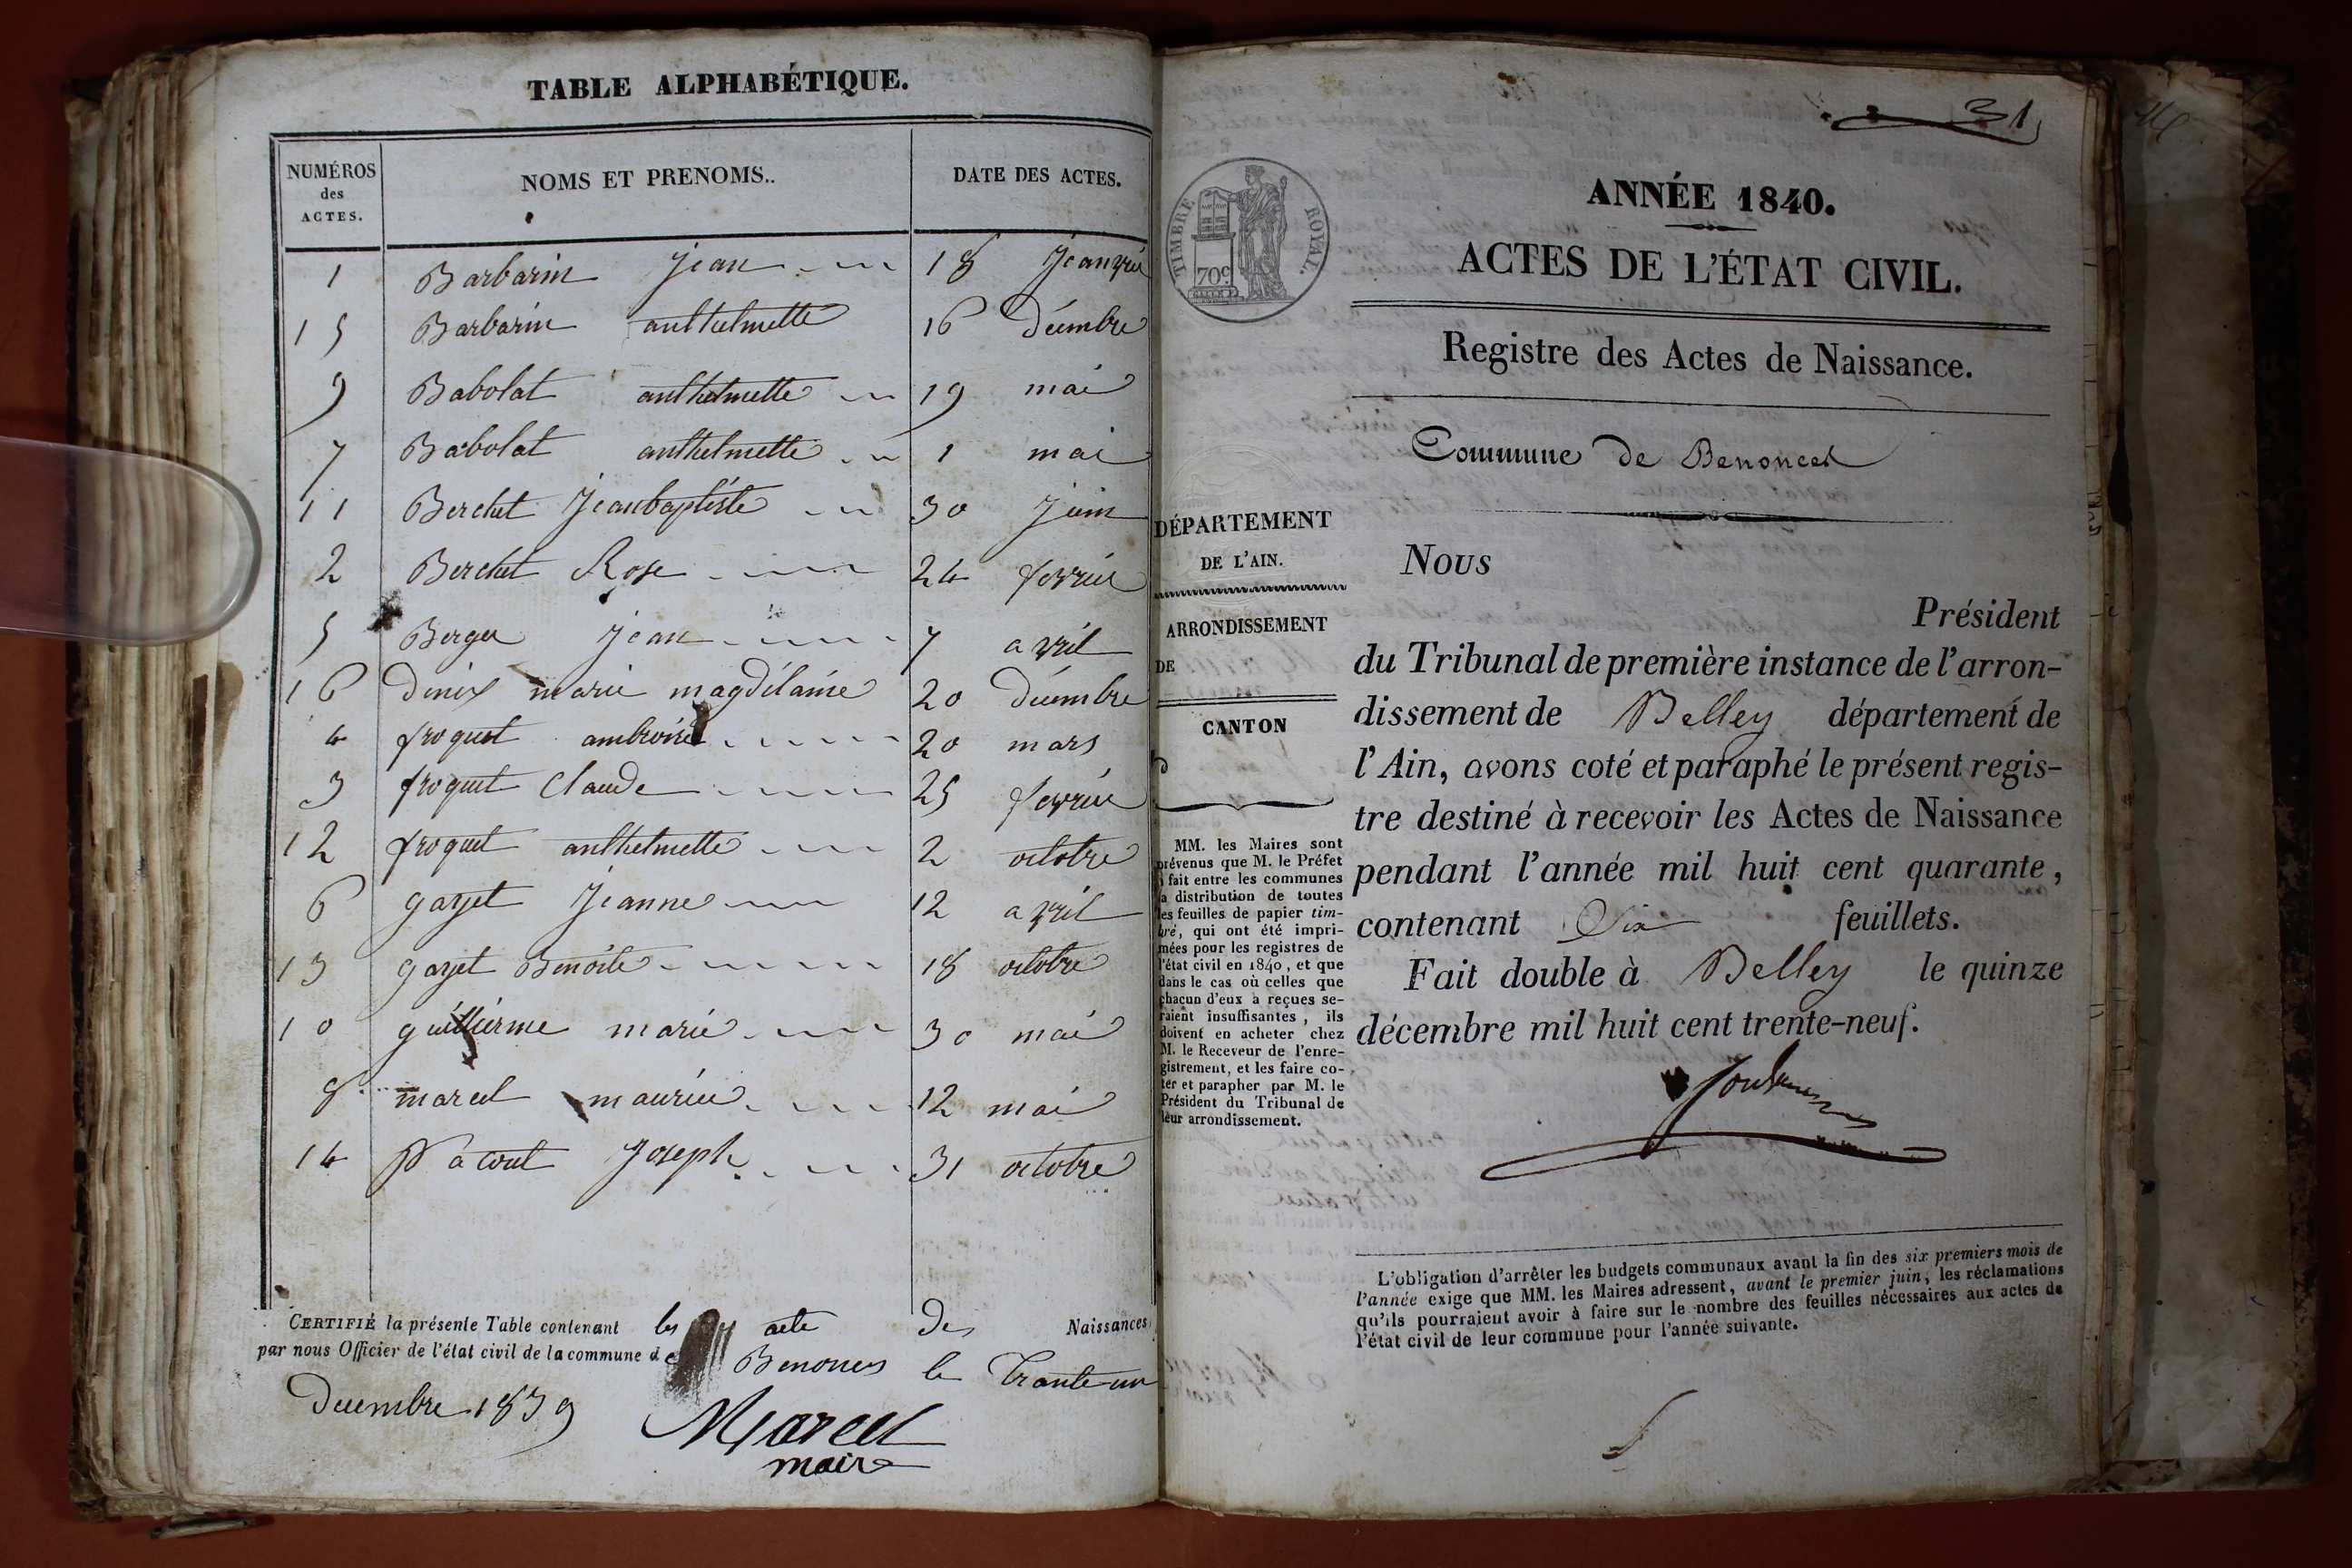 TABLE ALPHABÉTIQUE.
NUMÉROS des ACTES. NOMS ET PRENOMS.. DATE DES ACTES.
1 Barbarin Jean 18 Jeanvié
15 Barbarin anthelmette 16 décembre
9 Babolat anthelmette 19 mai
7 Babolat anthelmette 1 mai
11 Berchet Jeanbaptiste 30 Juin
2 Berchet Rose 24 fevrier
5 Berger Jean 7 avril
16 marie magdelaine 20 décembre
4 froquet ambroise 20 mars
3 froquet Claude 25 fevrier
12 froquet anthelmette 2 octobre
6 gayet Jeanne 12 avril
13 gayet Benoite 18 octobre
10 guillierme marie 30 mai
8 marcel maurice 12 mai
14 Joseph 31 octobre
CERTIFIÉ la présente Table contenant les acte des Naissances
par nous Officier de l'état civil de la commune de Benonces le trante un
Decembre 1839
Marcel
maire
31
TIMBRE ROYAL.
70c.
ANNÉE 1840.
ACTES DE L'ÉTAT CIVIL.
Registre des Actes de Naissance.
Commune de Benonces
DÉPARTEMENT
DE L'AIN.
ARRONDISSEMENT
DE
CANTON
MM. les Maires sont
prévenus que M. le Préfet
a fait entre les communes
la distribution de toutes
les feuilles de papier tim-
bré, qui ont été impri-
mées pour les registres de
l'état civil en 1840, et que
dans le cas où celles que
chacun d'eux a reçues se-
raient insuffisantes, ils
doivent en acheter chez
M. le Receveur de l'enre-
gistrement, et les faire co-
ter et parapher par M. le
Président du Tribunal de
leur arrondissement.
Nous
Président
du Tribunal de première instance de l'arron-
dissement de Belley département de
l'Ain, avons coté et paraphé le présent regis-
tre destiné à recevoir les Actes de Naissance
pendant l'année mil huit cent quarante,
contenant Six feuillets.
Fait double à Belley le quinze
décembre mil huit cent trente-neuf.
L'obligation d'arrêter les budgets communaux avant la fin des six premiers mois de
l'année exige que MM. les Maires adressent, avant le premier juin, les réclamations
qu'ils pourraient avoir à faire sur le nombre des feuilles nécessaires aux actes de
l'état civil de leur commune pour l'année suivante.